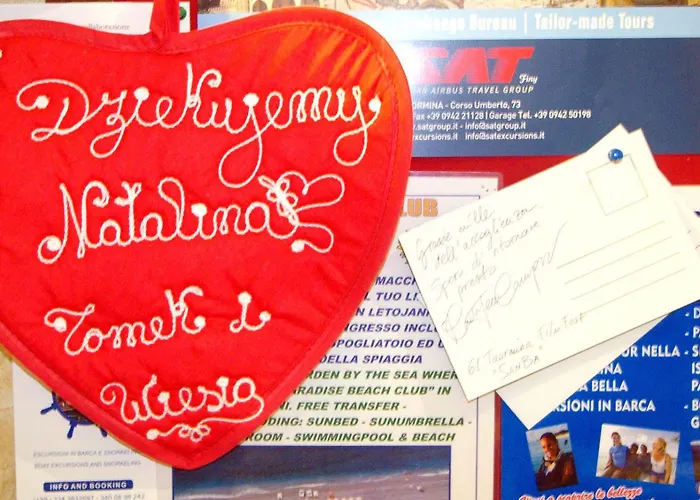 Dziękujemy
Natalina
Tomek i
Wiesia
Bureau | Tailor-made Tours
SAT
Finy
AN AIRBUS TRAVEL GROUP
ORMINA - Corso Umberto, 73
Fax +39 0942 21128 | Garage Tel. +39 0942 50198
.satgroup.it - info@satgroup.it
satexcursions.it - info@satexcursions.it
CLUB
Grazie mille
dell'accoglienza
Spero di ritornare
pronto
61 Taormina FilmFest
"SANBA"
MACCH
IL TUO LI
IN LETOJANN
INGRESSO INCLU
SPOGLIATOIO ED U
DELLA SPIAGGIA
RDEN BY THE SEA WHERE
ARADISE BEACH CLUB" IN
NI. FREE TRANSFER -
DING: SUNBED - SUNUMBRELLA -
ROOM - SWIMMINGPOOL & BEACH
ESCURSIONI IN BARCA E SNORKELING
BOAT EXCURSIONS AND SNORKELING
INFO AND BOOKING
OUR NELLA
MINA
A BELLA
RSIONI IN BARCA
- D
PA
- S
IS
P
- B
G
Vieni a scoprire le bellezze